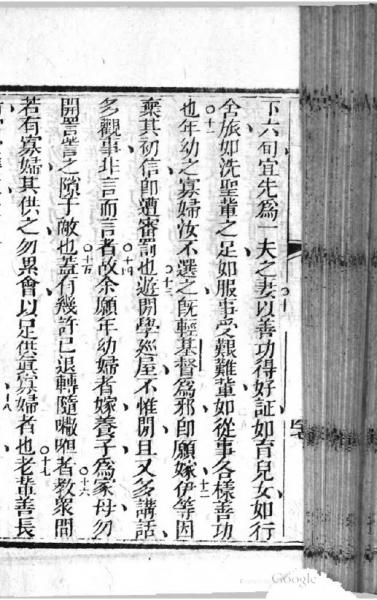 下六旬宜先為一夫之妻以善功得好証如育兒女如行
舍旅如洗聖輩之足如服事受艱難輩如從事各樣善功
也年幼之寡婦汝不選之既輕基督為邪即願嫁伊等因
棄其初信即遭審罰也遊閒學經屋不惟閒且又多講話
多觀事非言而言者故余願年幼婦者嫁養子為家母勿
開詈訾之隙于敵也蓋有幾許已退轉隨嗽呾者教眾間
若有寡婦其供之勿累會以足供真寡婦者也老輩善長
Google